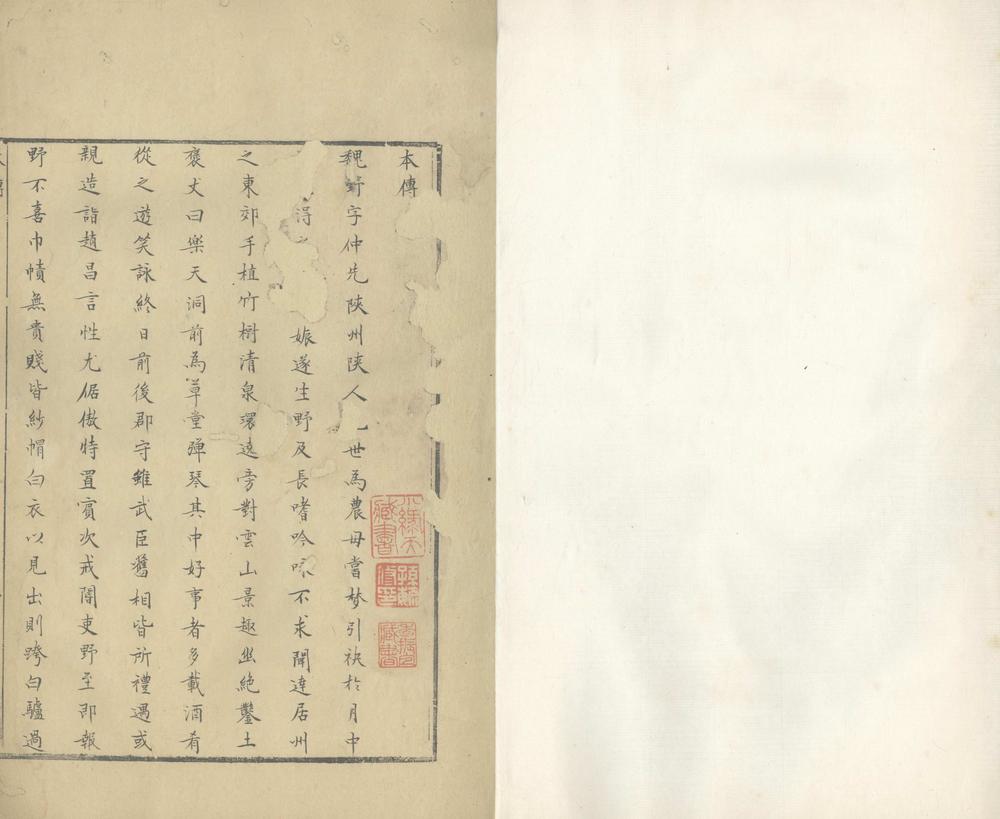 本傳
魏野字仲先陝州陝人世為農母嘗夢引袂於月中
得娠遂生野及長嗜吟咏不求聞達居州
之東郊手植竹樹清泉環遶旁對雲山景趣幽絶鑿土
袤丈曰樂天洞前為草堂彈琴其中好事者多載酒肴
從之遊笑詠終日前後郡守雖武臣舊相皆所禮遇或
親造詣趙昌言性尤倨傲特置賓次戒閽吏野至即報
野不喜巾幘無貴賤皆紗帽白衣以見出則跨白驢過
藏書
藏書